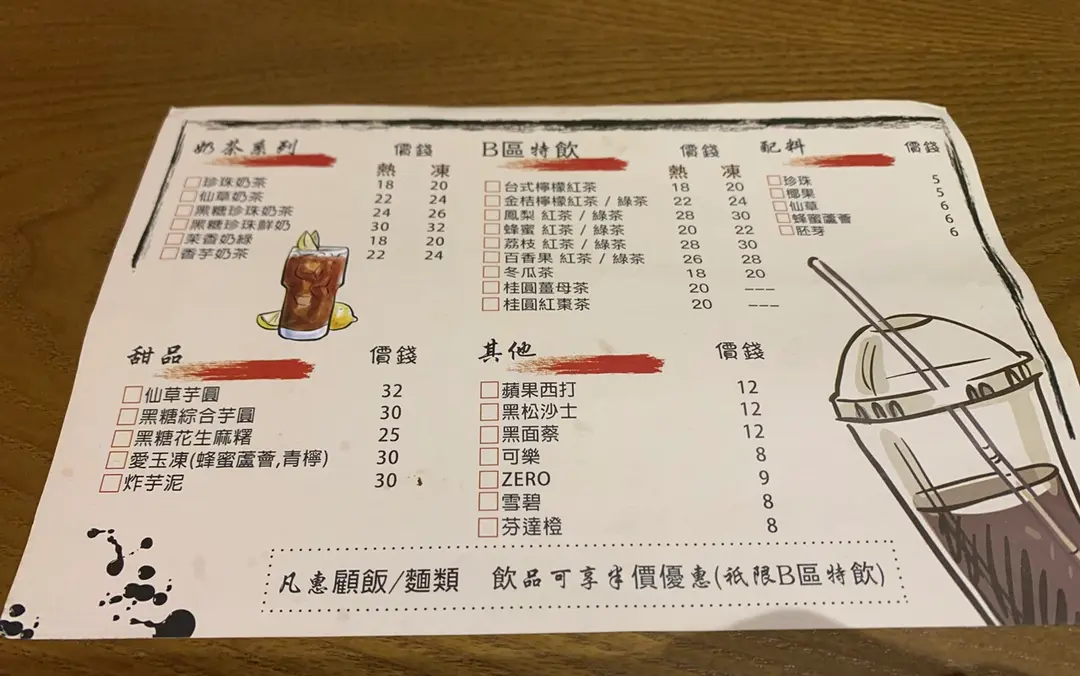 奶茶系列 價錢
熱 凍
珍珠奶茶 18 20
仙草奶茶 22 24
黑糖珍珠奶茶 24 26
黑糖珍珠鮮奶 30 32
茉香奶綠 18 20
香芋奶茶 22 24
B區特飲 價錢
熱 凍
台式檸檬紅茶 18 20
金桔檸檬紅茶 / 綠茶 22 24
鳳梨 紅茶 / 綠茶 28 30
蜂蜜 紅茶 / 綠茶 20 22
荔枝 紅茶 / 綠茶 28 30
百香果 紅茶 / 綠茶 26 28
冬瓜茶 18 20
桂圓薑母茶 20 ---
桂圓紅棗茶 20 ---
配料 價錢
珍珠 5
椰果 5
仙草 6
蜂蜜蘆薈 6
胚芽 6
甜品 價錢
仙草芋圓 32
黑糖綜合芋圓 30
黑糖花生麻糬 25
愛玉凍(蜂蜜蘆薈,青檸) 30
炸芋泥 30
其他 價錢
蘋果西打 12
黑松沙士 12
黑面蔡 12
可樂 8
ZERO 9
雪碧 8
芬達橙 8
凡惠顧飯/麵類 飲品可享半價優惠(祇限B區特飲)